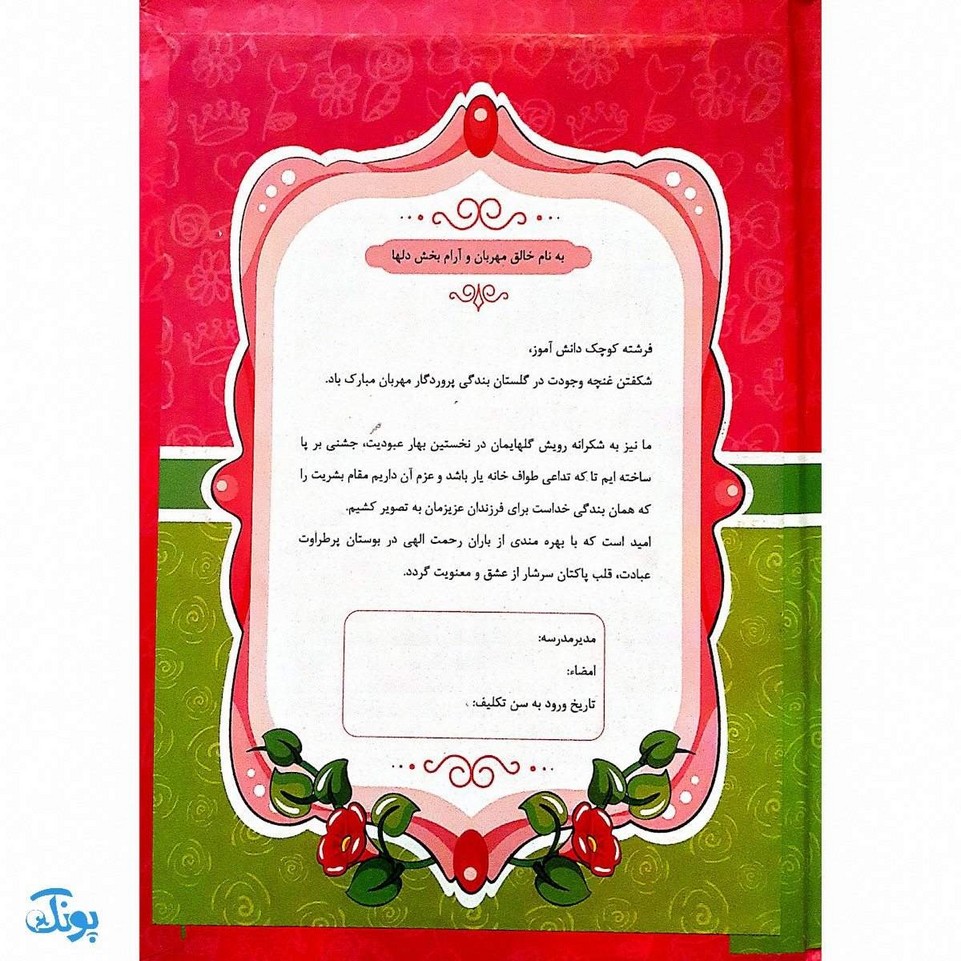 به نام خالق مهربان و آرام بخش دلها
فرشته کوچک دانش آموز،
شکفتن غنچه وجودت در گلستان بندگی پروردگار مهربان مبارک باد.
ما نیز به شکرانه رویش گلهایمان در نخستین بهار عبودیت، جشنی بر پا
ساخته ایم تا که تداعی طواف خانه یار باشد و عزم آن داریم مقام بشریت را
که همان بندگی خداست برای فرزندان عزیزمان به تصویر کشیم.
امید است که با بهره مندی از باران رحمت الهی در بوستان پرطراوت
عبادت، قلب پاکتان سرشار از عشق و معنویت گردد.
مدیرمدرسه:
امضاء:
تاریخ ورود به سن تکلیف:
پونک